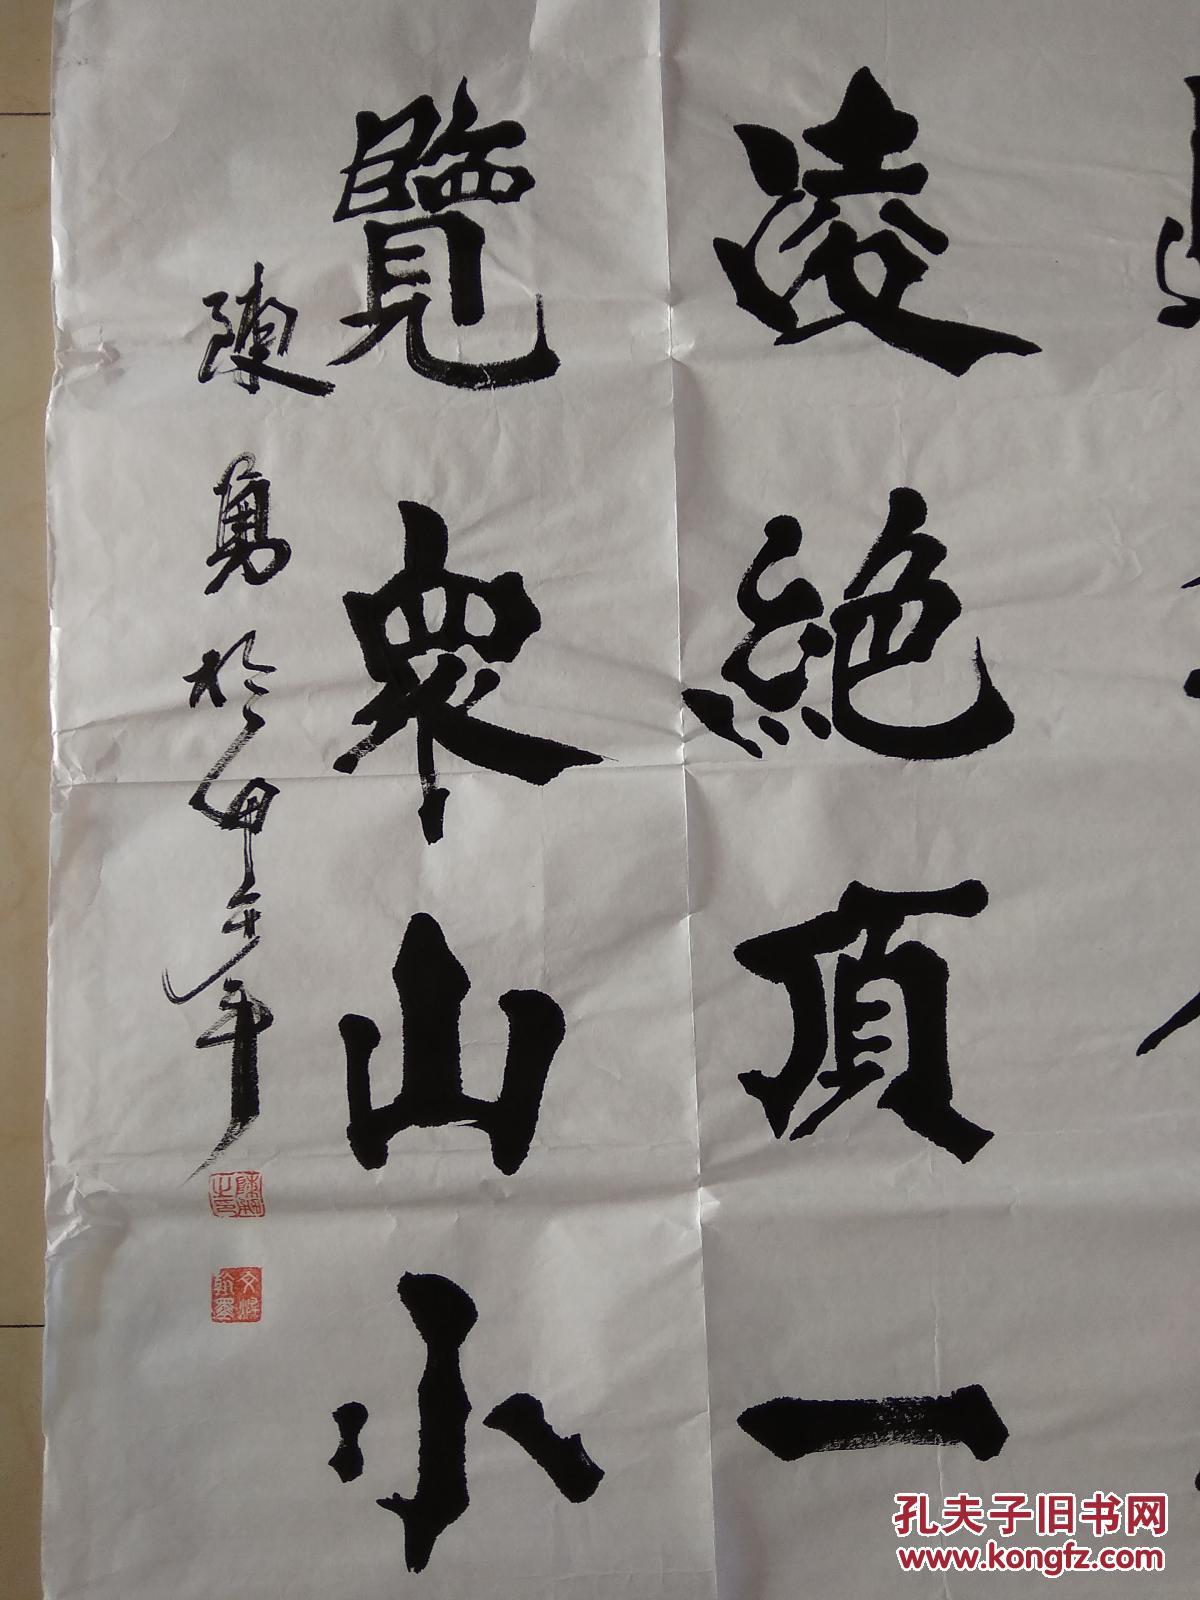 凌絕頂一
覽眾山小
陳勇於甲午年
孔夫子旧书网
www.kongfz.com